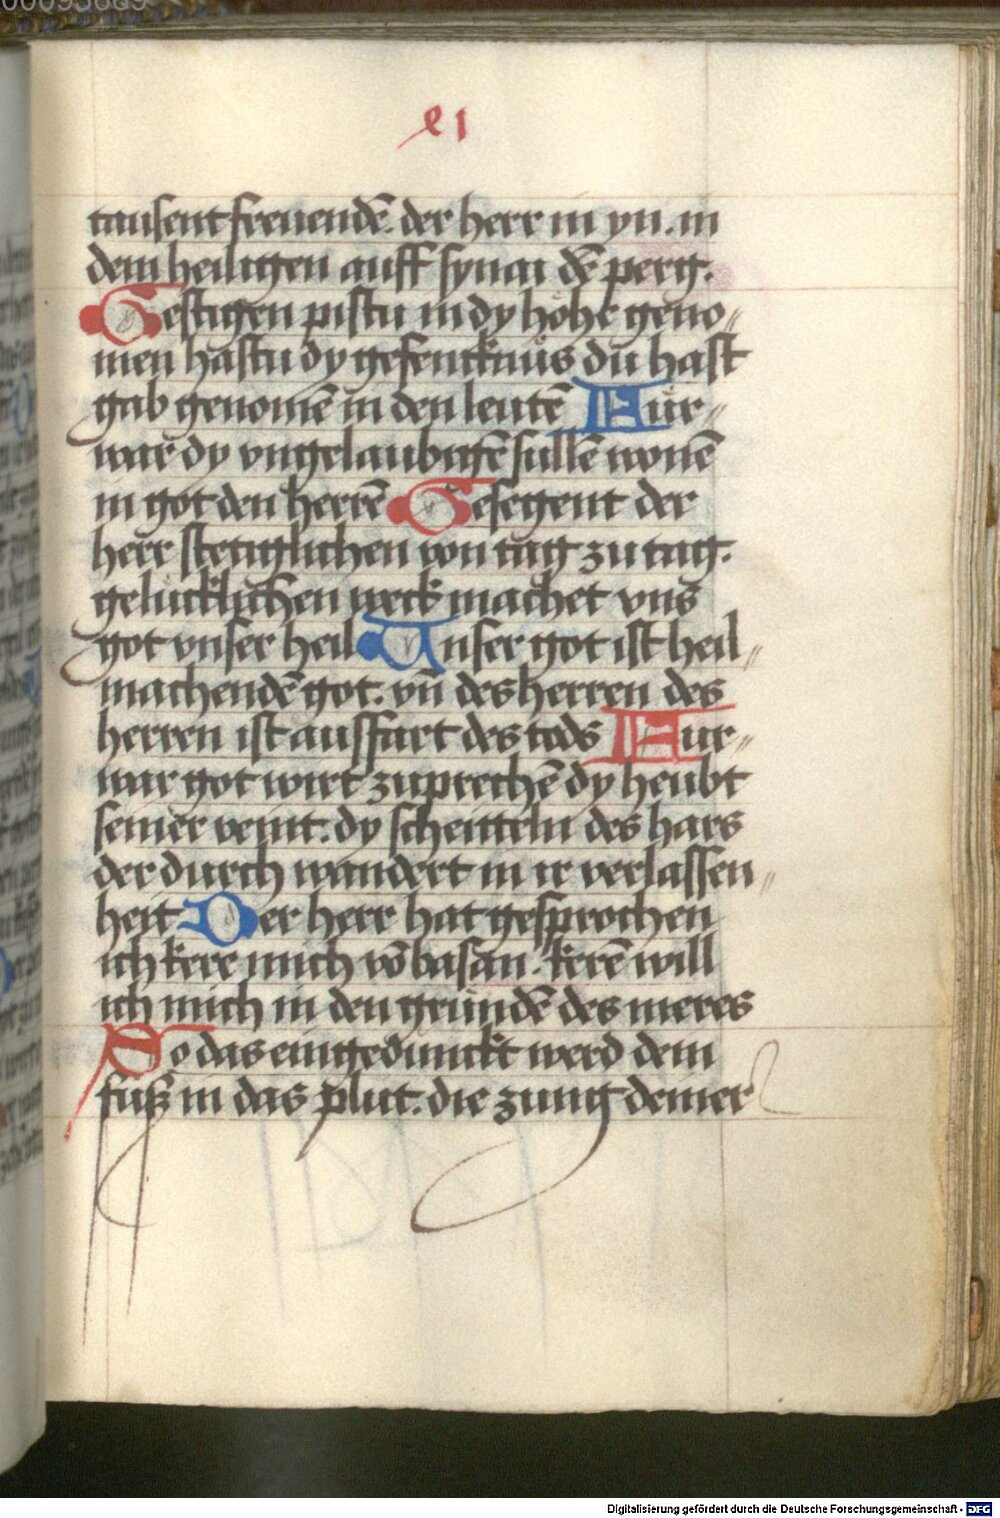 00093689
li
tausent freuendē. der herr in yn. in
dem heiligen auff synai dē perg.
Gestigen pistu in dy höhe geno⸗
men hastu dy gefencknüs du hast
gab genomē in den leutē Fur⸗
war dy vngelaubigē sullē wonē
in got den herrē Gesegent der
herr stetiglichen von tag zu tag.
gelucklichen weck machet vns
got vnser heil Unser got ist heil⸗
machendē got. vn̄ des herren des
herren ist aussfart des tods Fur⸗
war got wirt zuprechē dy heubt
seiner veint. dy scheitteln des hars
der durch wandert in ir verlassen⸗
heit Der herr hat gesprochen
ich kere mich vō basan. kerē will
ich mich in den gründē des meres
So das eingedunckt werd dein
fuß in das plut. die zung deiner
Digitalisierung gefördert durch die Deutsche Forschungsgemeinschaft - DFG